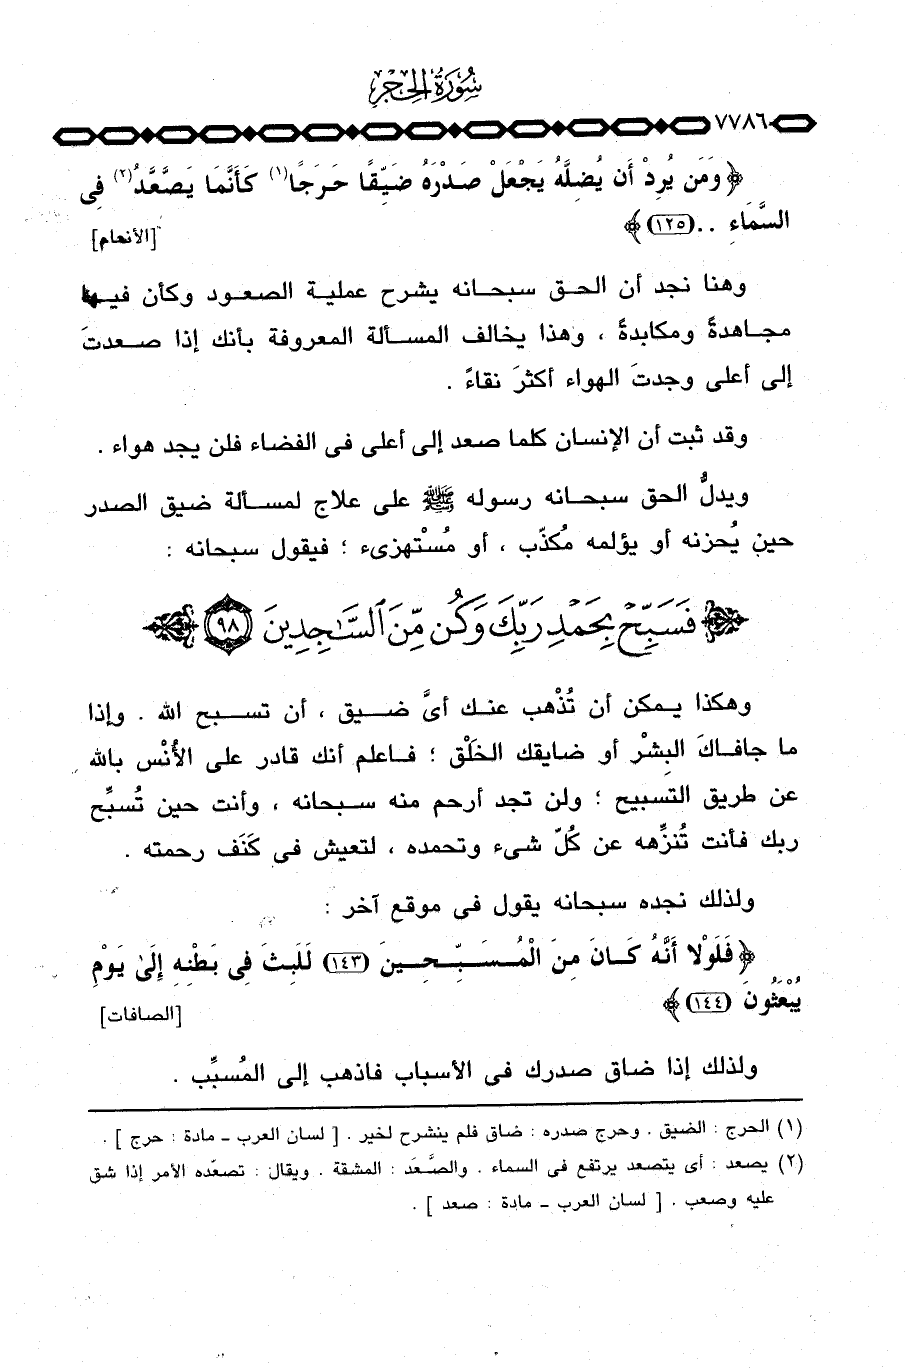 سُورَةُ الحِجْرِ
٧٧٨٦
﴿ وَمَن يُرِدْ أَن يُضِلَّهُ يَجْعَلْ صَدْرَهُ ضَيِّقًا حَرَجًا(١) كَأَنَّمَا يَصَّعَّدُ(٢) فِى
السَّمَاءِ .. (١٢٥) ﴾ [الأنعام]
وهنا نجد أن الحق سبحانه يشرح عملية الصعود وكأن فيها
مجاهدةً ومكابدةً ، وهذا يخالف المسألة المعروفة بأنك إذا صعدتَ
إلى أعلى وجدتَ الهواء أكثرَ نقاءً .
وقد ثبت أن الإنسان كلما صعد إلى أعلى فى الفضاء فلن يجد هواء .
ويدلُّ الحق سبحانه رسوله ﷺ على علاج لمسألة ضيق الصدر
حين يُحزنه أو يؤلمه مُكذِّب ، أو مُسْتهزىء ؛ فيقول سبحانه :
﴿ فَسَبِّحْ بِحَمْدِ رَبِّكَ وَكُن مِّنَ ٱلسَّٰجِدِينَ ٩٨ ﴾
وهكذا يمكن أن تُذْهب عنك أىَّ ضيق ، أن تسبح الله . وإذا
ما جافاكَ البشرْ أو ضايقك الخَلْق ؛ فاعلم أنك قادر على الأُنْس بالله
عن طريق التسبيح ؛ ولن تجد أرحم منه سبحانه ، وأنت حين تُسبِّح
ربك فأنت تُنزِّهه عن كُلّ شىء وتحمده ، لتعيش فى كَنَف رحمته .
ولذلك نجده سبحانه يقول فى موقع آخر :
﴿ فَلَوْلا أَنَّهُ كَانَ مِنَ الْمُسَبِّحِينَ (١٤٣) لَلَبِثَ فِى بَطْنِهِ إِلَىٰ يَوْمِ
يُبْعَثُونَ (١٤٤) ﴾ [الصافات]
ولذلك إذا ضاق صدرك فى الأسباب فاذهب إلى المُسبِّب .
(١) الحرج : الضيق . وحرج صدره : ضاق فلم ينشرح لخير . [ لسان العرب - مادة : حرج ] .
(٢) يصعد : أى يتصعد يرتفع فى السماء . والصَّعَد : المشقة . ويقال : تصعّده الأمر إذا شق
عليه وصعب . [ لسان العرب - مادة : صعد ] .